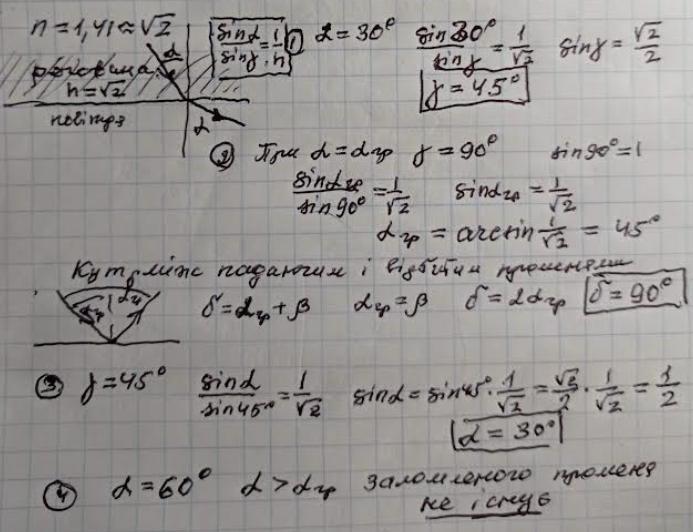 n = 1,41 ≈ √2
α
речовина
n = √2
повітря
α
sinα/sinγ = 1/n
① α = 30° sin30°/sinγ = 1/√2 sinγ = √2/2
γ = 45°
② При α = αгр γ = 90° sin90° = 1
sinαгр/sin90° = 1/√2 sinαгр = 1/√2
αгр = arcsin 1/√2 = 45°
Кут між падаючим і відбитим променями
αгр αгр
б = αгр + β αгр = β б = 2αгр б = 90°
③ γ = 45° sinα/sin45° = 1/√2 sinα = sin45° · 1/√2 = √2/2 · 1/√2 = 1/2
α = 30°
④ α = 60° α > αгр заломленого променя
не існує